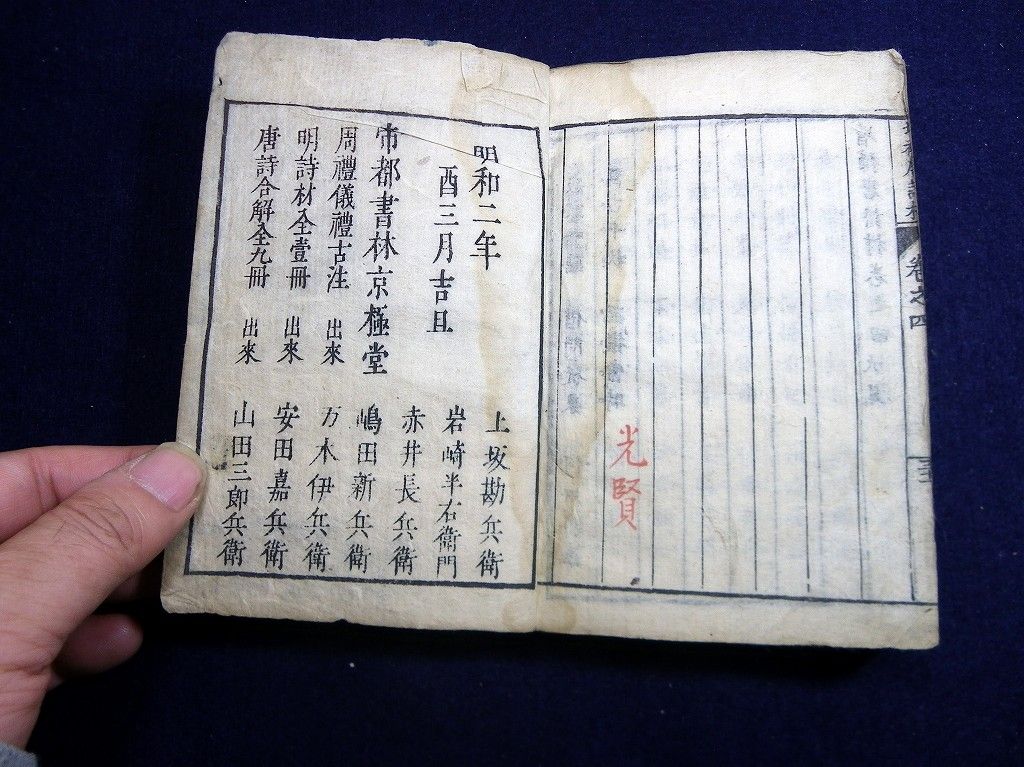 卷之四
光賢
明和二年
酉三月吉旦
帝都書林京極堂
周禮儀禮古注 出來
明詩材全壹冊 出來
唐詩合解全九冊 出來
上坂勘兵衛
岩崎半右衛門
赤井長兵衛
嶋田新兵衛
万木伊兵衛
安田嘉兵衛
山田三郎兵衛